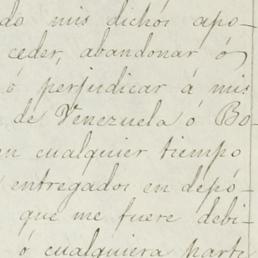 do mis dichos apo-
ceder, abandonar ó
ó perjudicar á mis
de Venezuela ó Bo-
en cualquier tiempo
entregados en depó-
que me fuere debi-
ó cualquiera parte